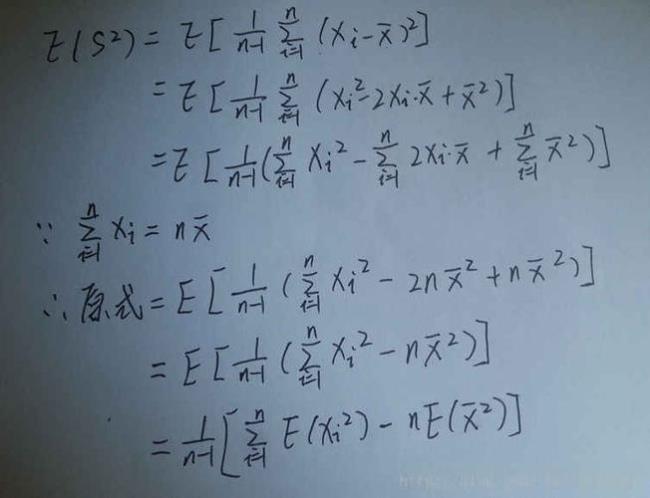 E(S²) = E[1/(n-1) ∑_{i=1}^{n} (Xi-X̄)²]
= E[1/(n-1) ∑_{i=1}^{n} (Xi²-2Xi·X̄+X̄²)]
= E[1/(n-1) (∑_{i=1}^{n} Xi² - ∑_{i=1}^{n} 2Xi·X̄ + ∑_{i=1}^{n} X̄²)]
∵ ∑_{i=1}^{n} Xi = nX̄
∴ 原式 = E[1/(n-1) (∑_{i=1}^{n} Xi² - 2nX̄² + nX̄²)]
= E[1/(n-1) (∑_{i=1}^{n} Xi² - nX̄²)]
= 1/(n-1) [∑_{i=1}^{n} E(Xi²) - nE(X̄²)]